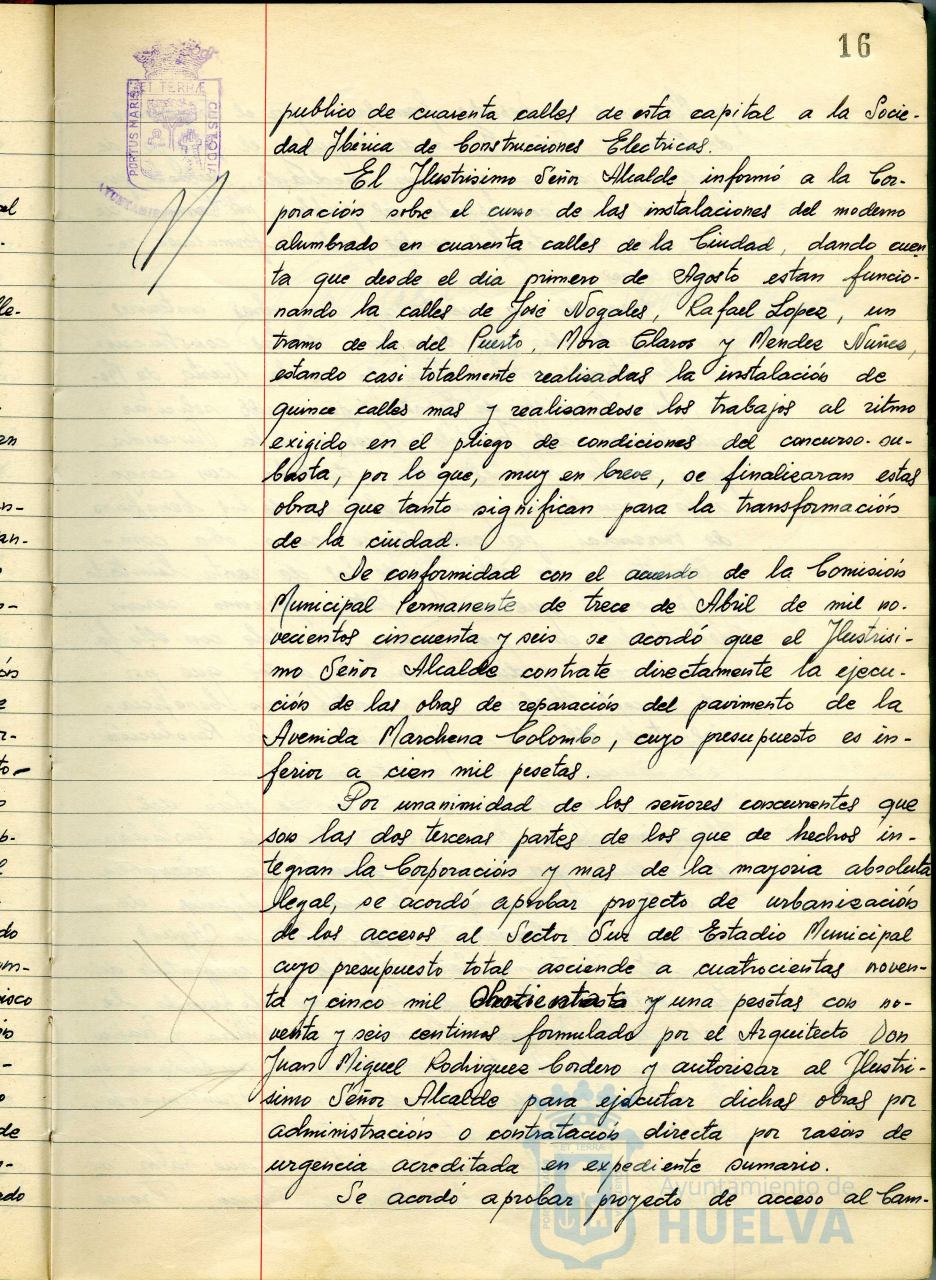 16
ET TERRÆ
PORTUS MARIS
CUSTODIA
publico de cuarenta calles de esta capital a la Socie-
dad Ibérica de Construcciones Electricas.
El Ilustrisimo Señor Alcalde informó a la Cor-
poración sobre el curso de las instalaciones del moderno
alumbrado en cuarenta calles de la Ciudad, dando cuen
ta que desde el dia primero de Agosto estan funcio-
nando la calles de José Nogales, Rafael Lopez, un
tramo de la del Puerto, Mora Claros y Mendez Nuñez,
estando casi totalmente realisadas la instalación de
quince calles mas y realisandose los trabajos al ritmo
exigido en el pliego de condiciones del concurso-su-
basta, por lo que, muy en breve, se finalizaran estas
obras que tanto significan para la transformación
de la ciudad.
De conformidad con el acuerdo de la Comisión
Municipal Permanente de trece de Abril de mil no-
vecientos cincuenta y seis se acordó que el Ilustrisi-
mo Señor Alcalde contrate directamente la ejecu-
ción de las obras de reparación del pavimento de la
Avenida Marchena Colombo, cuyo presupuesto es in-
ferior a cien mil pesetas.
Por unanimidad de los señores concurrentes que
son las dos terceras partes de los que de hechos in-
tegran la Corporación y mas de la mayoria absoluta
legal, se acordó aprobar proyecto de urbanización
de los accesos al Sector Sur del Estadio Municipal
cuyo presupuesto total asciende a cuatrocientas noven-
ta y cinco mil y una pesetas con no-
venta y seis centimos formulado por el Arquitecto Don
Juan Miguel Rodriguez Cordero y autorisar al Ilustri-
simo Señor Alcalde para ejecutar dichas obras por
administración o contratación directa por rasón de
urgencia acreditada en expediente sumario.
Se acordó aprobar proyecto de acceso al Cam-
Ayuntamiento de
HUELVA